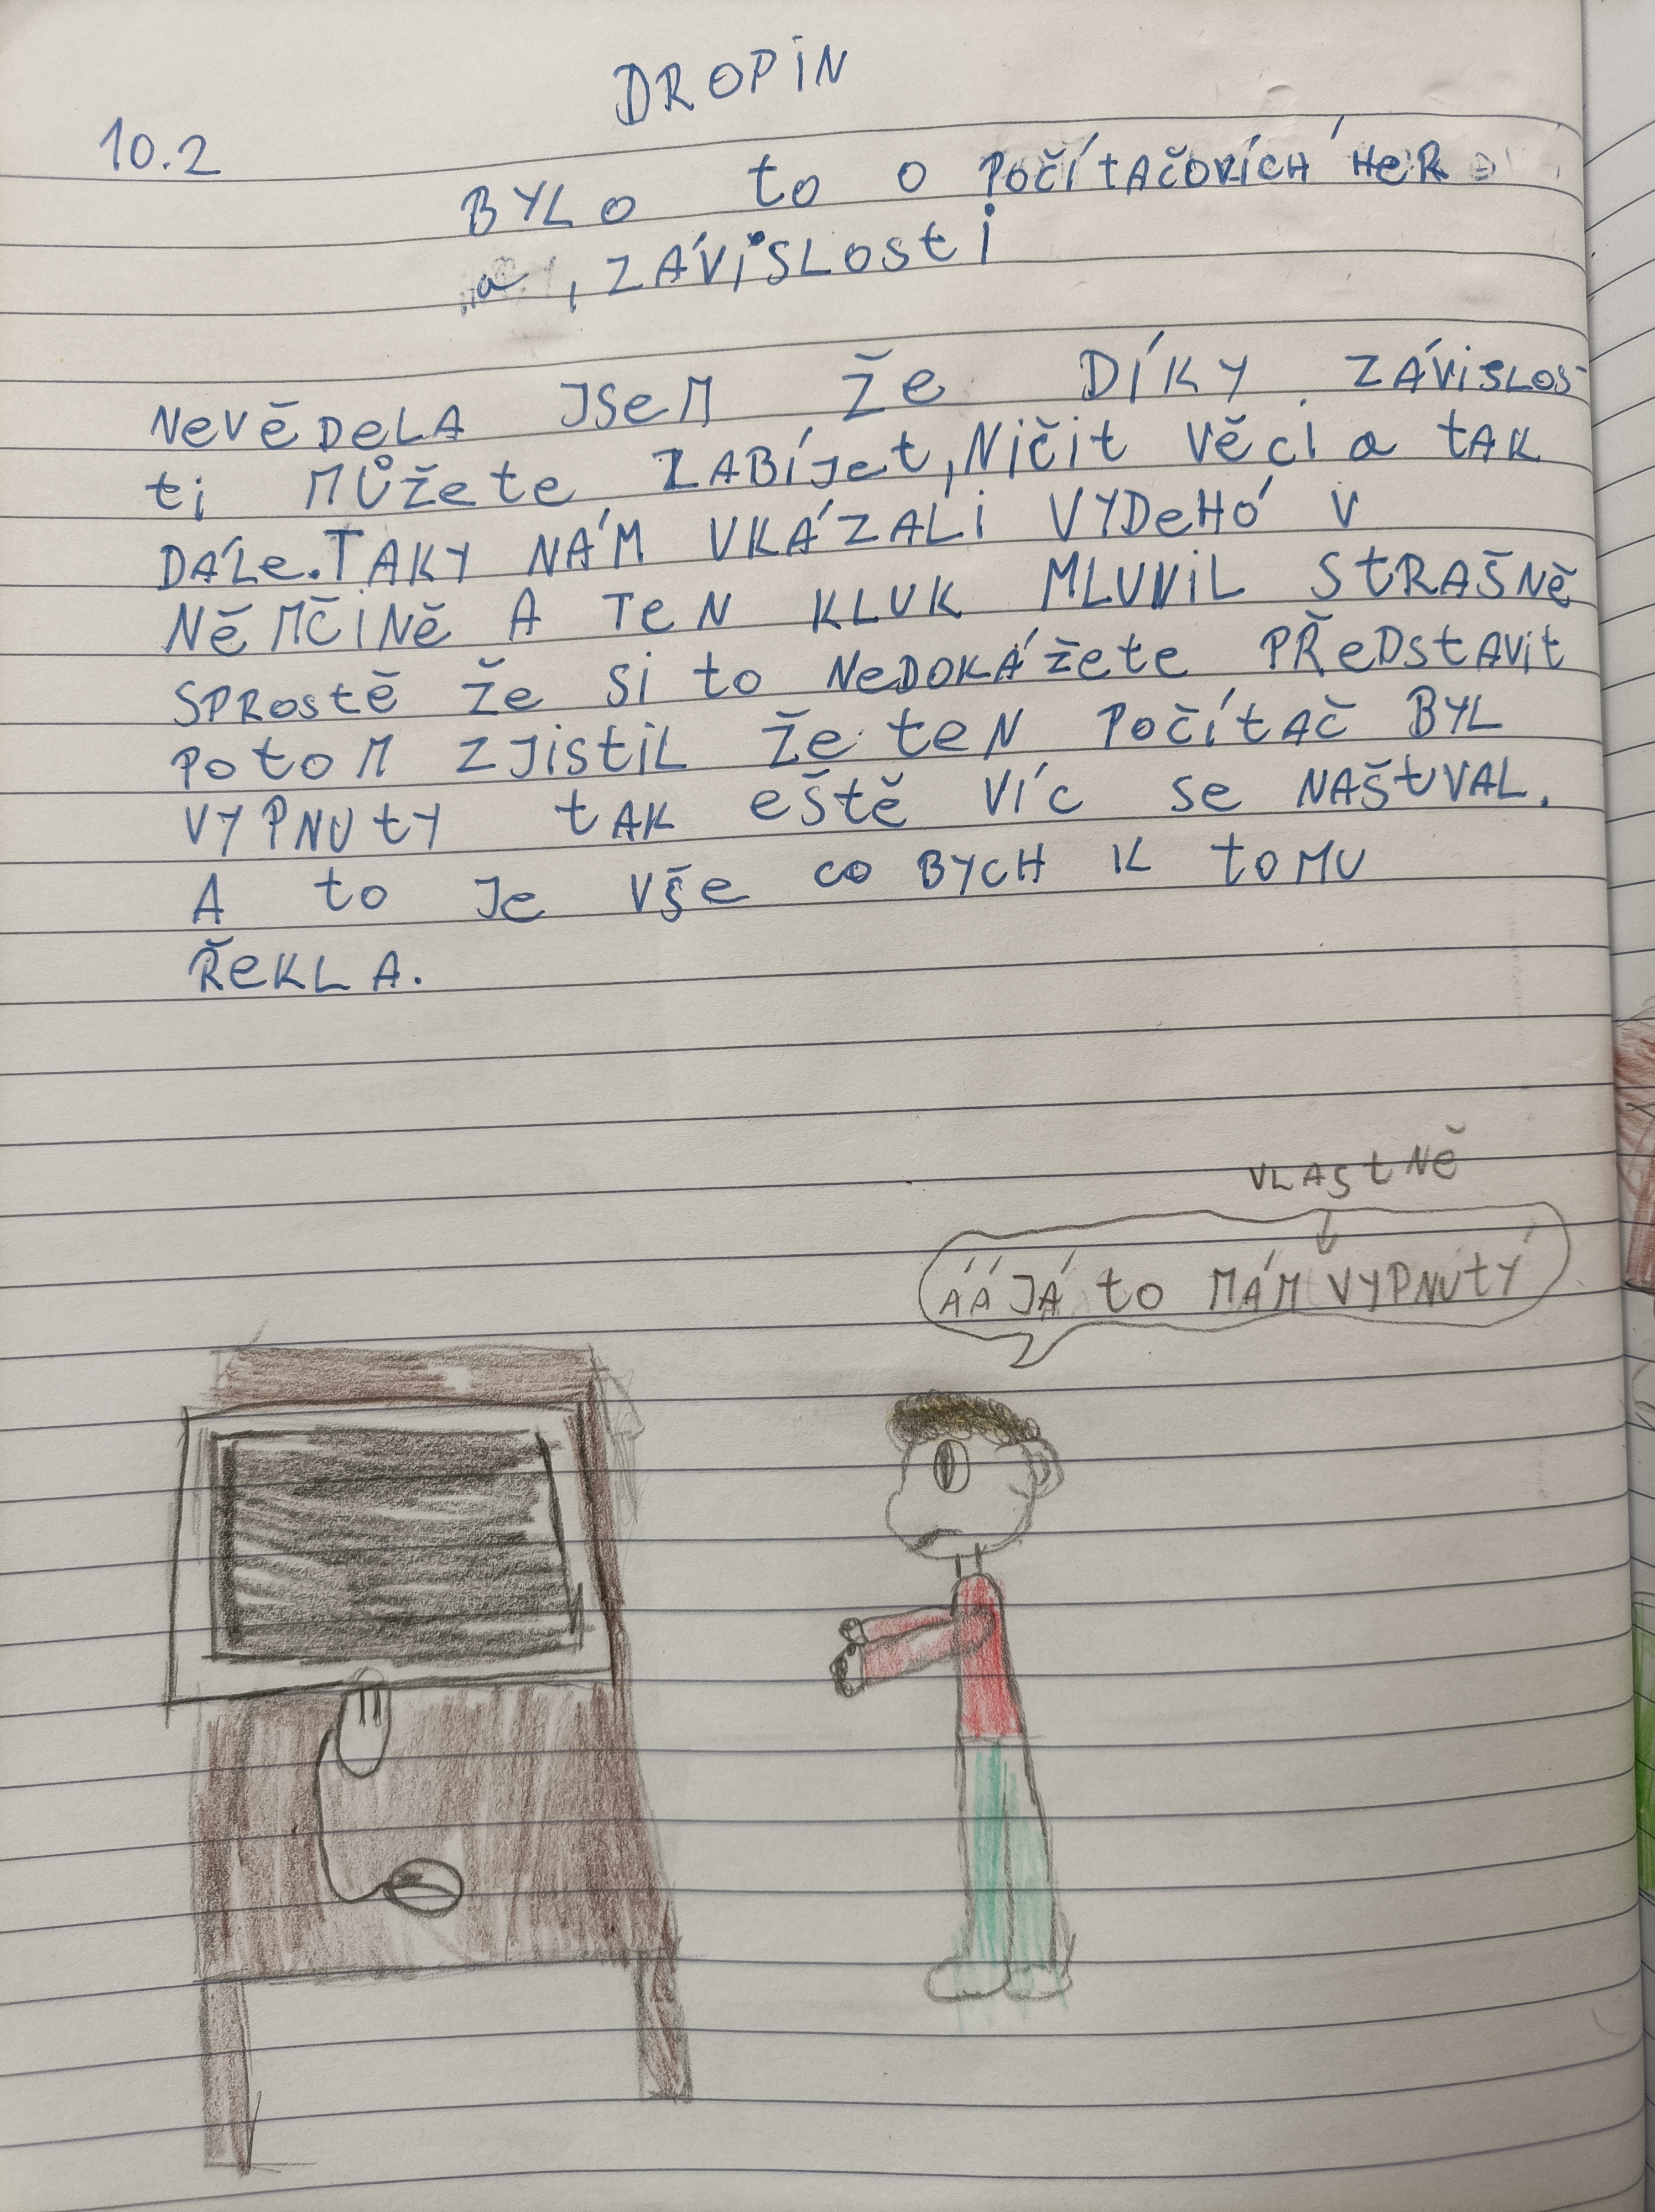 DROPiN
10.2
BYLO to o POČÍtAČOVÍCH HeR
a, ZÁViSLOSti
NeVĚDeLA JSeM ŽE DÍKY ZÁViSLOS-
ti MŮŽete ZABÍJet, NiČit VĚCi a tAK
DÁLe. TAKY NÁM VKÁZALi VYDeHÓ V
NĚMČiNĚ A TeN KLUK MLUViL StRAŠNĚ
SPRostĚ Že Si to NeDOKÁŽete PŘeDstAVit
PotoM ZJistiL Že teN POČÍtAČ BYL
VYPNUtY tAK eŠtĚ VÍc Se NAŠtVAL.
A to Je VŠe co BYCH K toMU
ŘeKLA.
VLAStNĚ
ÁÁ JÁ to MÁM VYPNUtÝ